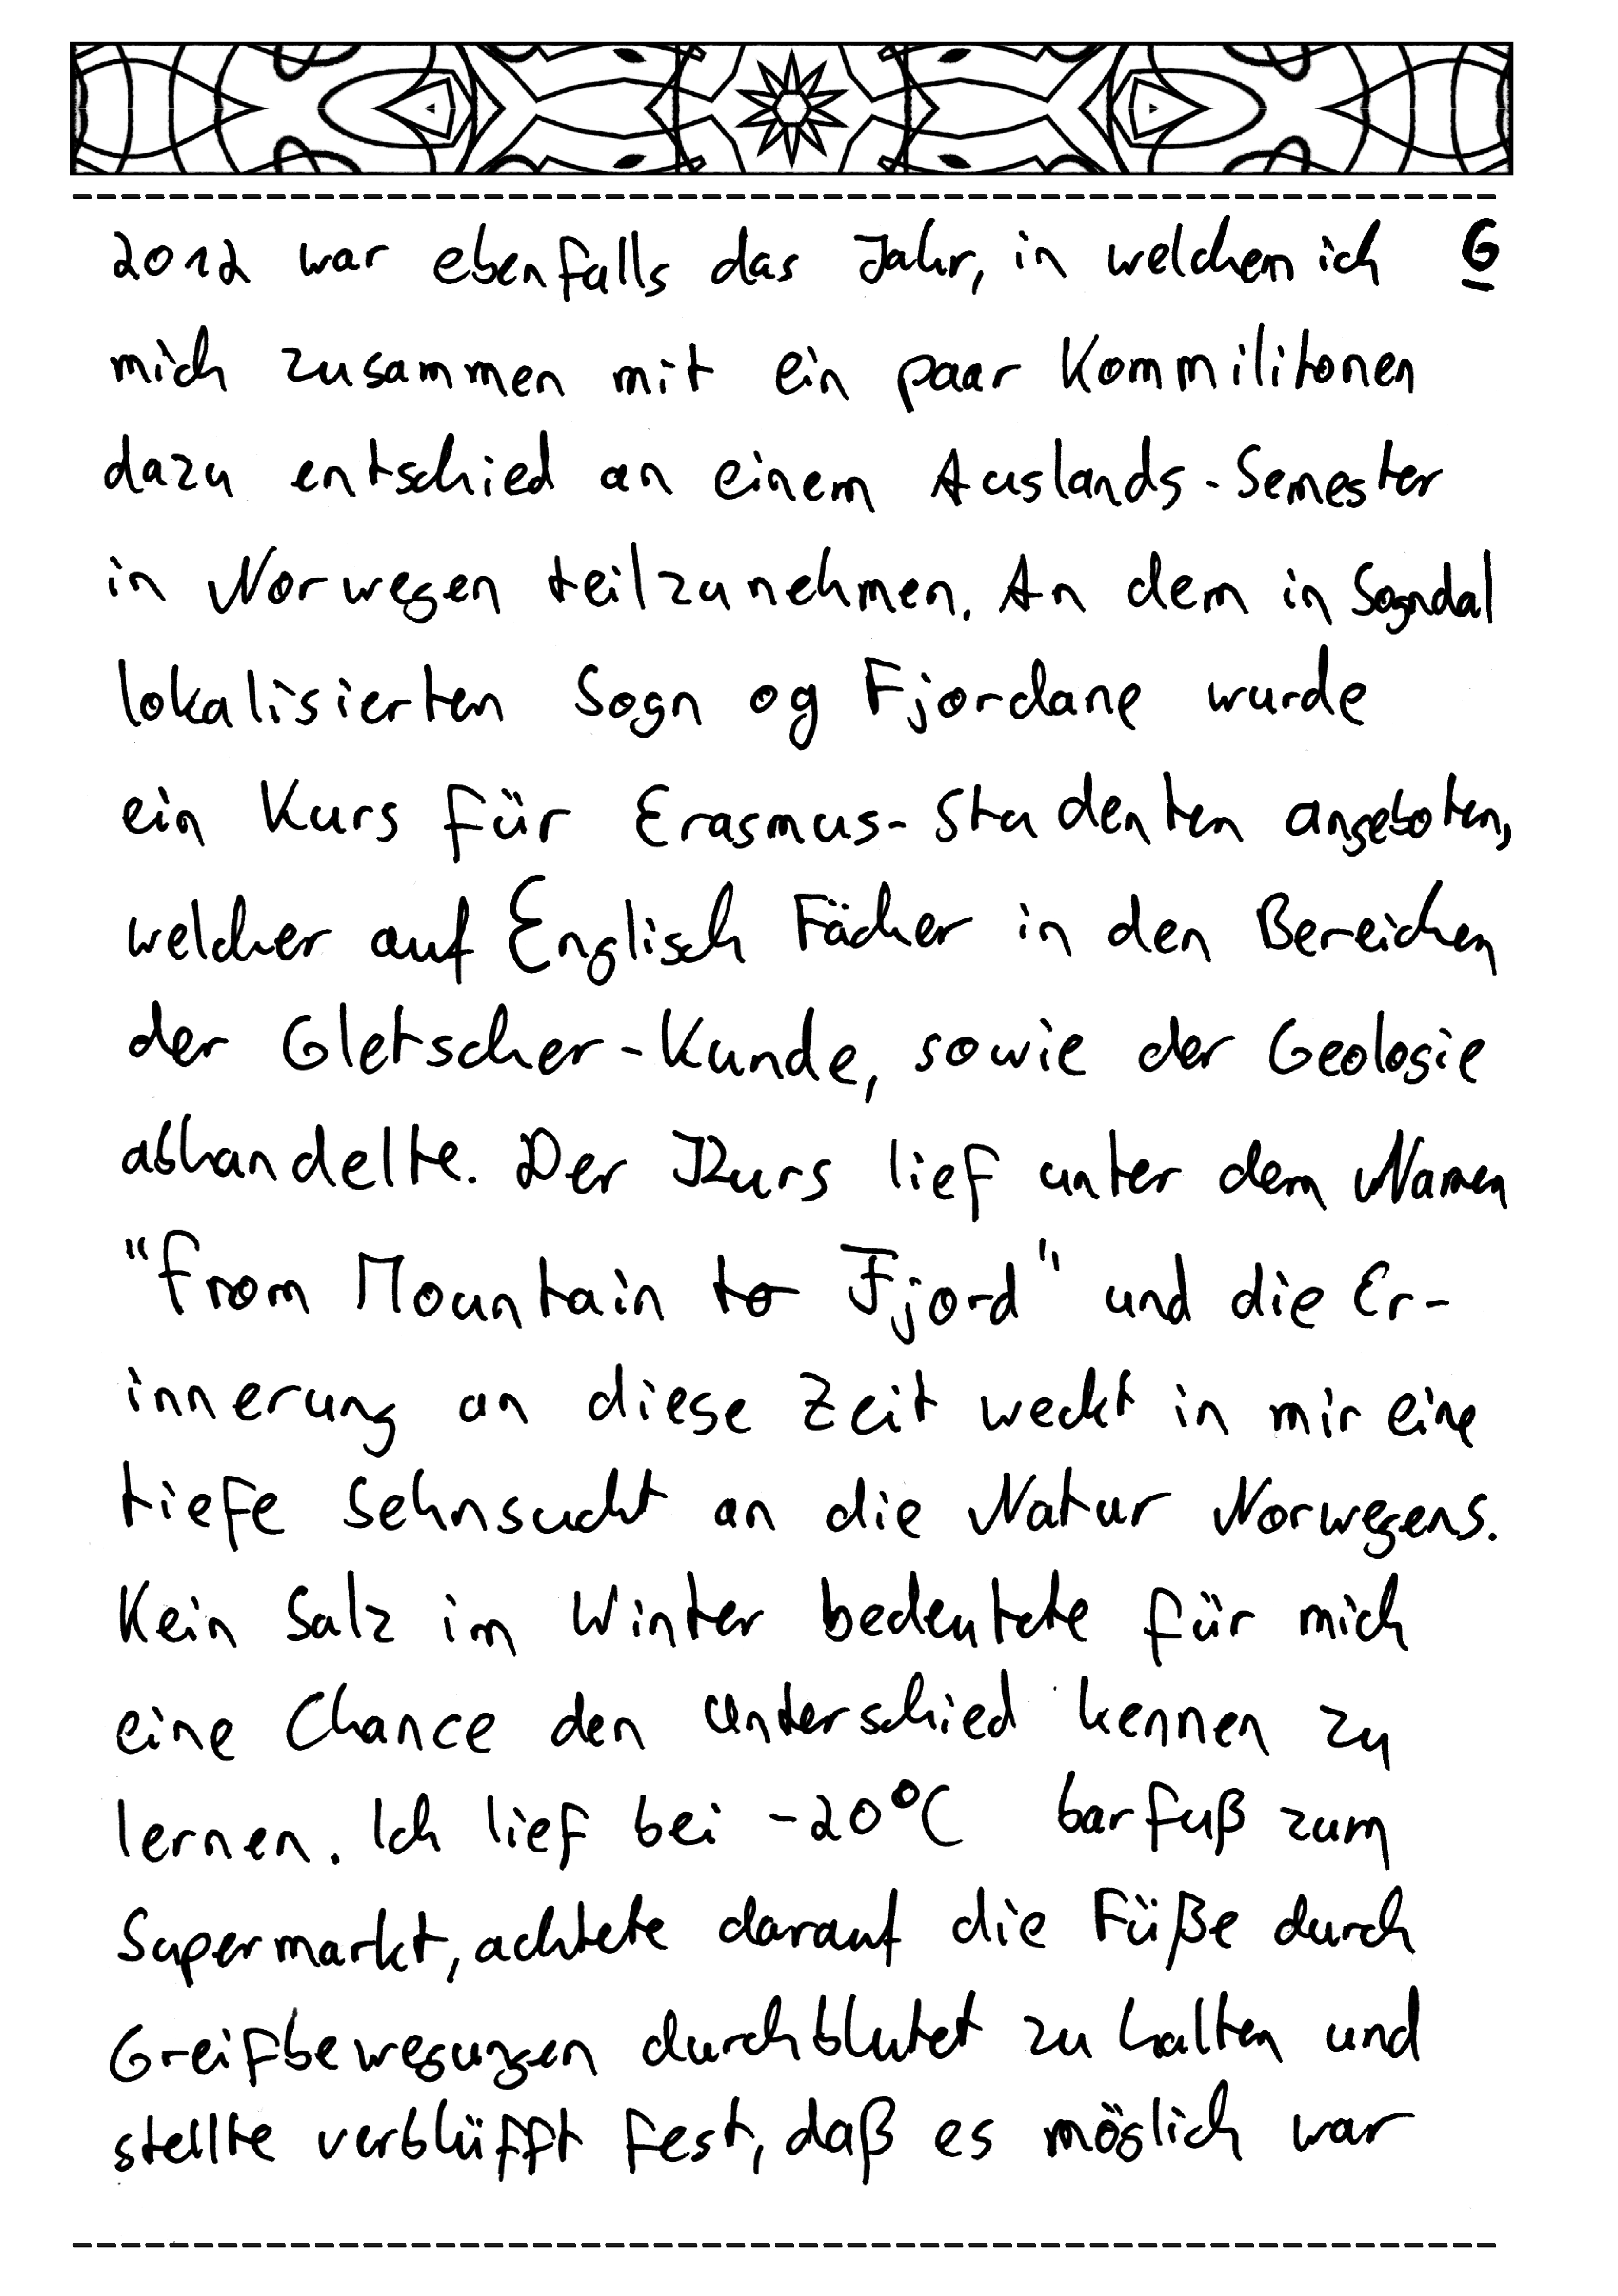 2012 war ebenfalls das Jahr, in welchem ich 6
mich zusammen mit ein paar Kommilitonen
dazu entschied an einem Auslands-Semester
in Norwegen teilzunehmen. An dem in Sogndal
lokalisierten Sogn og Fjordane wurde
ein Kurs für Erasmus-Studenten angeboten,
welcher auf Englisch Fächer in den Bereichen
der Gletscher-Kunde, sowie der Geologie
abhandelte. Der Kurs lief unter dem Namen
"From Mountain to Fjord" und die Er-
innerung an diese Zeit weckt in mir eine
tiefe Sehnsucht an die Natur Norwegens.
Kein Salz im Winter bedeutete für mich
eine Chance den Unterschied kennen zu
lernen. Ich lief bei -20°C barfuß zum
Supermarkt, achtete darauf die Füße durch
Greifbewegungen durchblutet zu halten und
stellte verblüfft fest, daß es möglich war